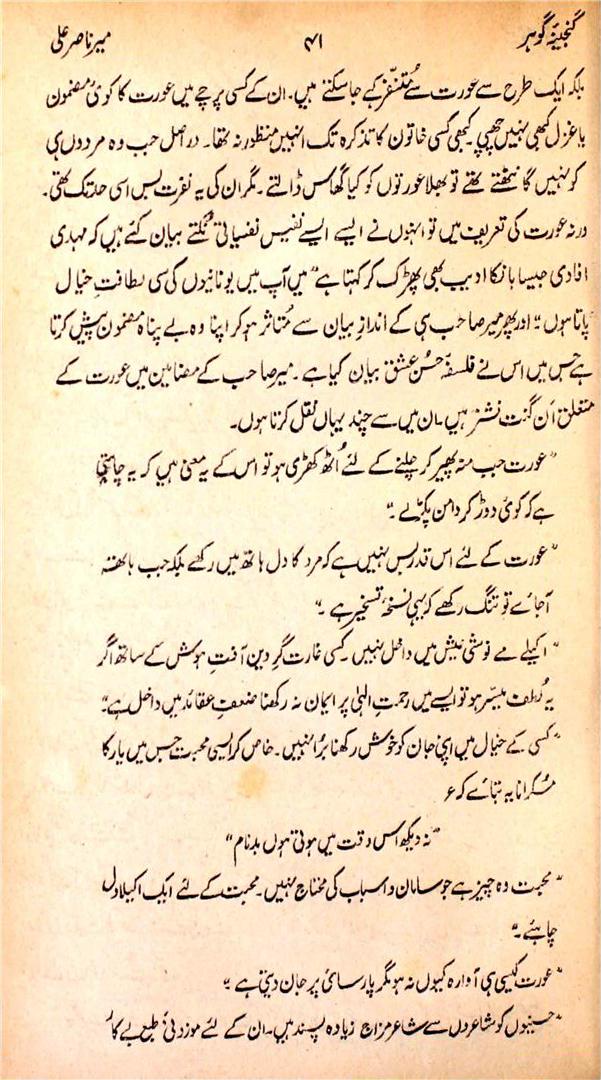 گنجینۂ گوہر ۴۱ میر ناصر علی
بلکہ ایک طرح سے عورت سے مُتنفّر کہے جا سکتے ہیں۔ ان کے کسی پرچے میں عورت کا کوئی مضمون
یا غزل کبھی نہیں چھپی۔ کبھی کسی خاتون کا تذکرہ تک انہیں منظور نہ تھا۔ دراصل جب وہ مردوں ہی
کو نہیں گانٹھتے تھے تو بھلا عورتوں کو کیا گھاس ڈالتے۔ مگر ان کی یہ نفرت بس اسی حد تک تھی۔
ورنہ عورت کی تعریف میں تو انہوں نے ایسے ایسے نفیس نفسیاتی نُکتے بیان کئے ہیں کہ مہدی
افادی جیسا بانکا ادیب بھی پھڑک کر کہتا ہے "میں آپ میں یونانیوں کی سی لطافتِ خیال
پاتا ہوں" اور پھر میر صاحب ہی کے اندازِ بیان سے مُتاثر ہو کر اپنا وہ بے پناہ مضمون پیش کرتا
ہے جس میں اس نے فلسفۂ حُسن عشق بیان کیا ہے۔ میر صاحب کے مضامین میں عورت کے
متعلق اَن گنت نشتر ہیں۔ ان میں سے چند یہاں نقل کرتا ہوں۔
"عورت جب منہ پھیر کر چلنے کے لئے اُٹھ کھڑی ہو تو اس کے یہ معنی ہیں کہ یہ چاہتی
ہے کہ کوئی دوڑ کر دامن پکڑلے۔"
"عورت کے لئے اس قدر بس نہیں ہے کہ مرد کا دل ہاتھ میں رکھے بلکہ جب ہاتھ
آجائے تو تنگ رکھے کہ یہی نسخۂ تسخیر ہے۔"
"اکیلے مے نوشی عیش میں داخل نہیں۔ کسی غارت گرِ دین آفتِ ہوش کے ساتھ اگر
یہ لُطف میسر ہو تو ایسے میں رحمتِ الٰہی پر ایمان نہ رکھنا ضعفِ عقائد میں داخل ہے۔"
"کسی کے خیال میں اپنی جان کو خوش رکھنا بُرا نہیں۔ خاص کر ایسی محبت جس میں یار کا
مُسکرانا یہ بتائے کہ ؏
"نہ دیکھ اس وقت میں ہوتی ہوں بدنام"
"محبت وہ چیز ہے جو سامان و اسباب کی محتاج نہیں۔ محبت کے لئے ایک اکیلا دل
چاہئے۔"
"عورت کیسی ہی آوارہ کیوں نہ ہو مگر پارسائی پر جان دیتی ہے"
"حسینوں کو شاعروں سے شاعر مزاج زیادہ پسند ہیں۔ ان کے لئے موزونیٔ طبع بے کار